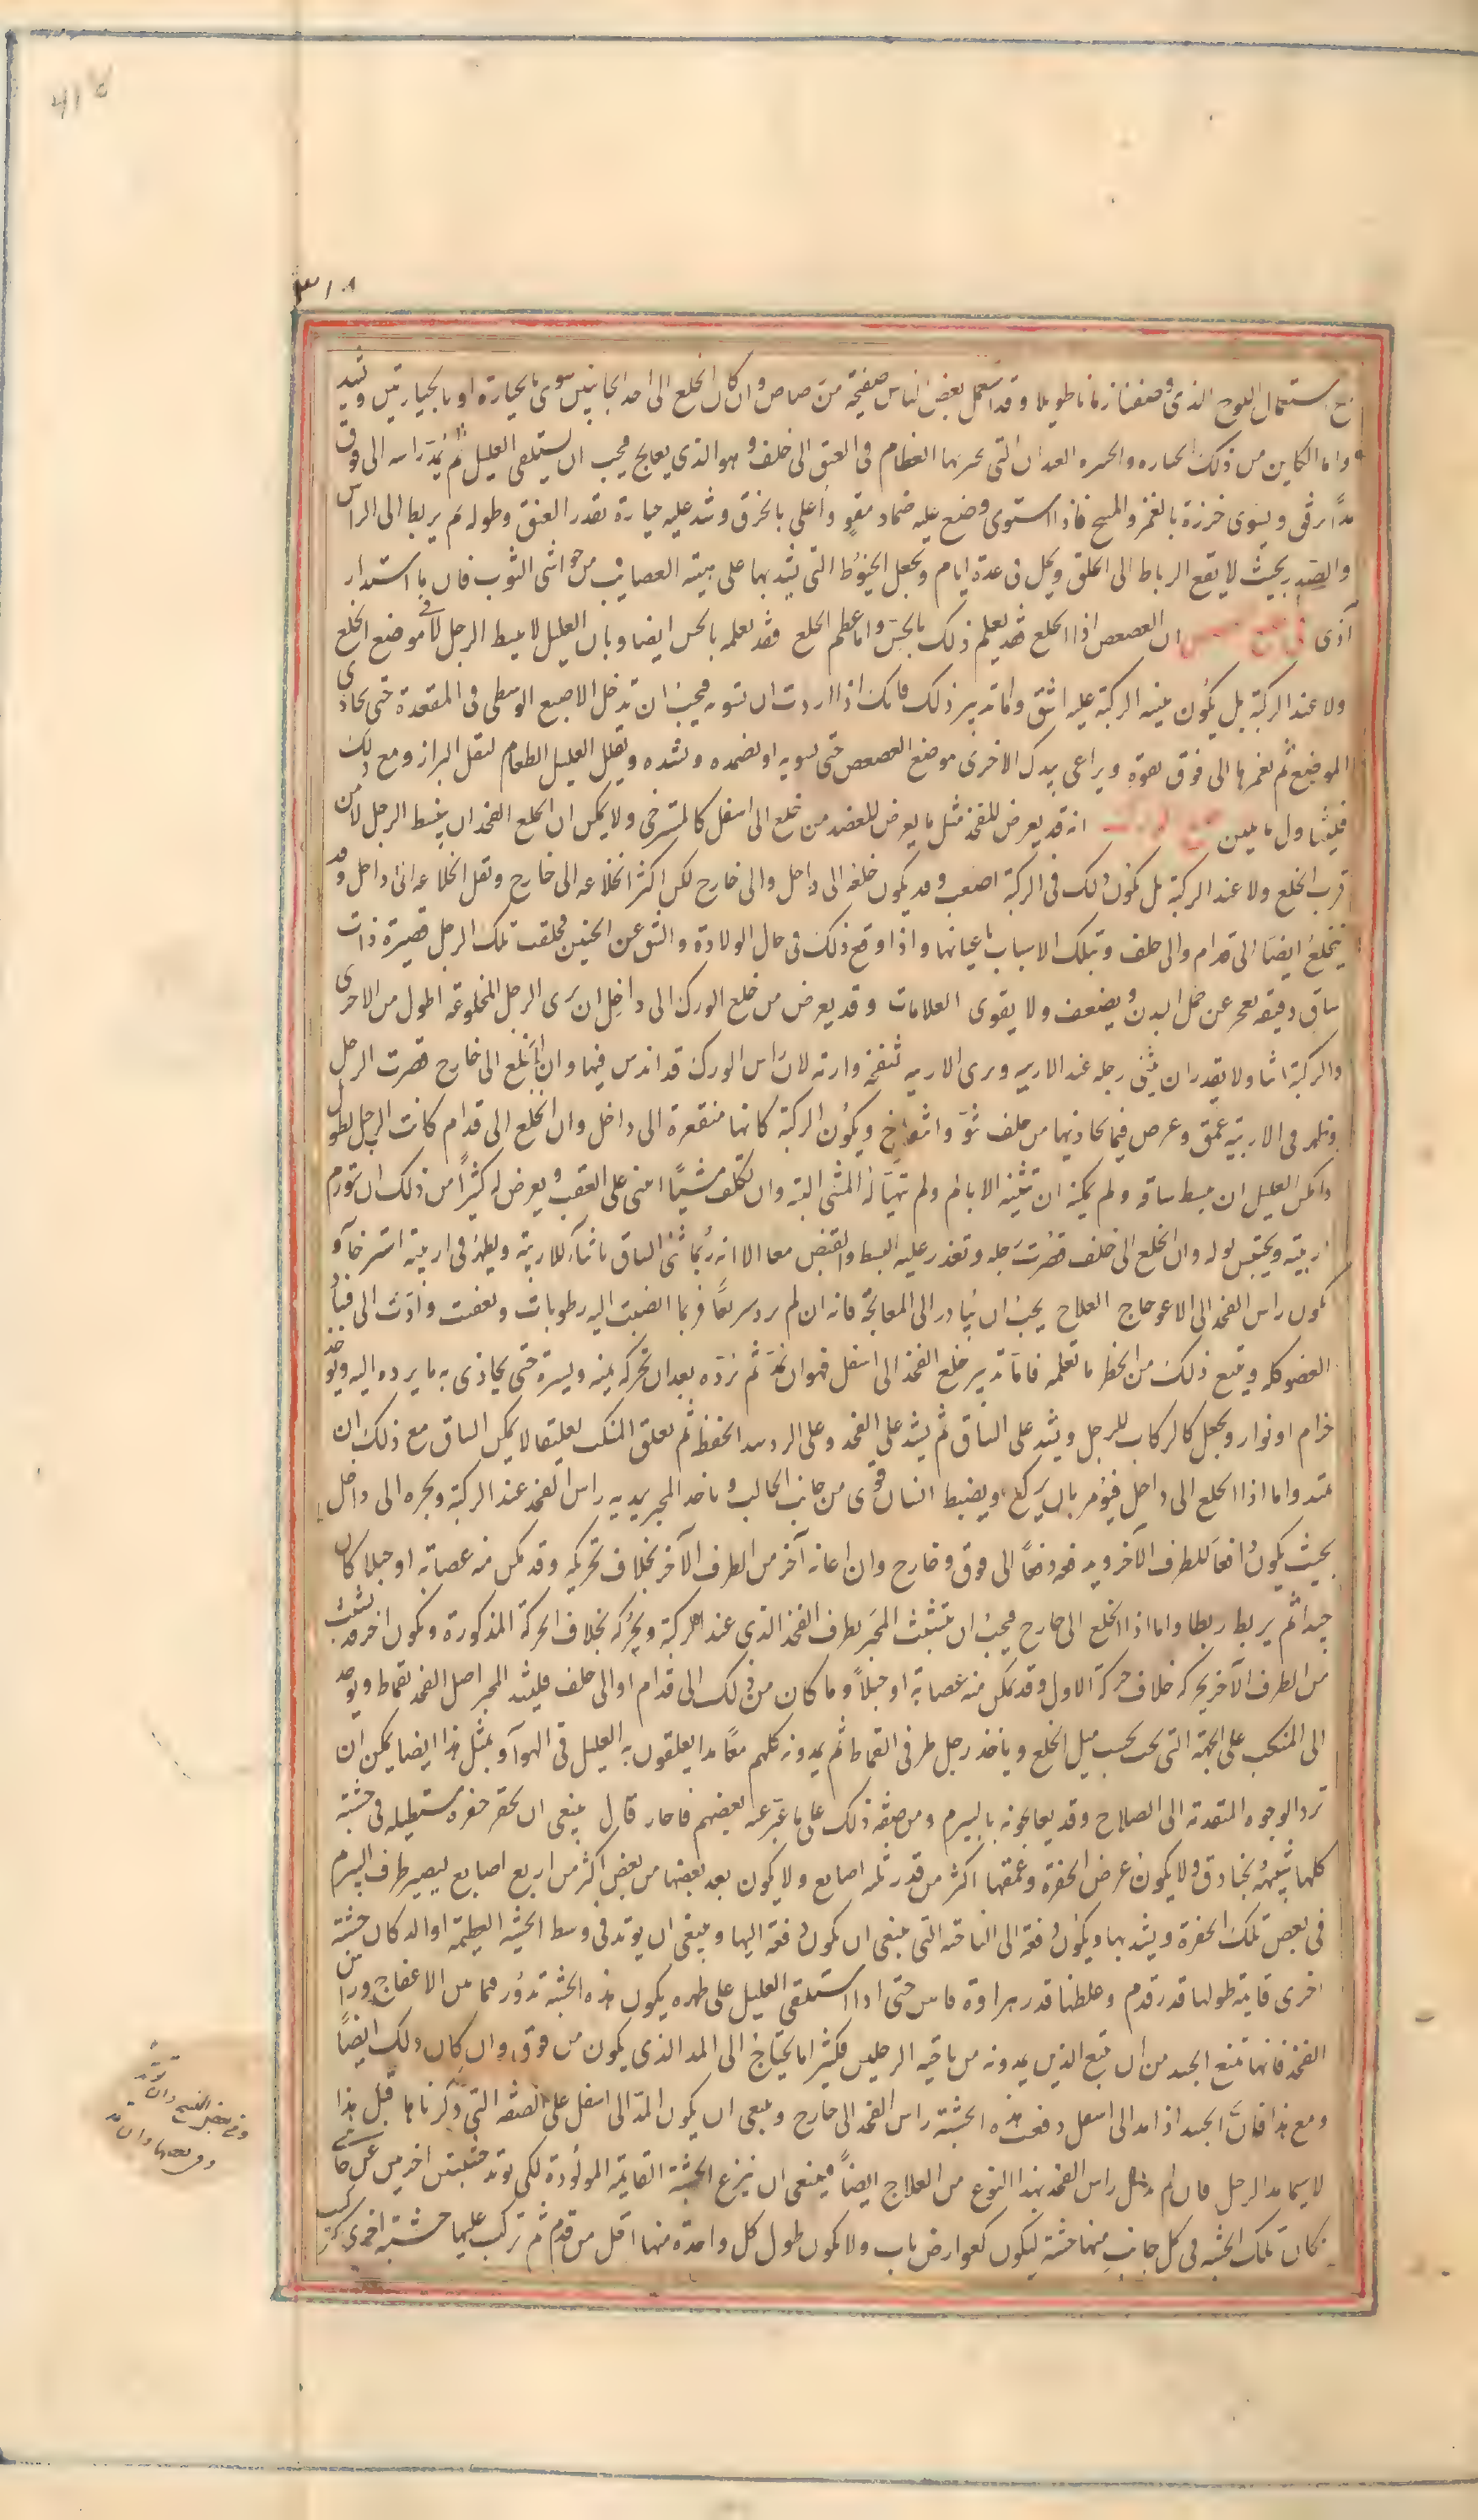 استعمال اللوح الذى وصفنا زمانا طويلا وقد استعمل بعض الناس صفيحة من رصاص وان كان الخلع الى احد الجانبين سوى بالجبارة او بالجبارتين وشد
واما الكاين من ذلك العظام فى العنق الى خلف وهو الذى يعالج فيجب ان يستلقى العليل ثم يمد راسه الى فوق
مدا برفق ويسوى خرزة بالغمز والمسح فاذا استوى وضع عليه ضماد مقو واعلى بالخرق وشد عليه جبارة بقدر العنق وطوله ثم يربط الى الراس
والصدر بحيث لا يقع الرباط الى الحلق ويحل فى عدة ايام ويجعل الخيوط التى يشد بها على هيئة العصايب من حواشى الثوب فان ما استدار
آذى ان العصعص اذا انخلع فقد يعلم ذلك بالجس واما عظم الخلع فقد يعلمه بالحس ايضا وبان العليل لا يبسط الرجل لا فى موضع الخلع
ولا عند الركبة بل يكون ثنيه الركبة عليه اشق واما تدبير ذلك فانك اذا اردت ان تسويه فيجب ان تدخل الاصبع الوسطى فى المقعدة حتى يحاذى
الموضع ثم تغمزها الى فوق بقوة ويراعى بيدك الاخرى موضع العصعص حتى تسويه او تضمده وتشده ويقلل العليل الطعام ليقل البراز ومع ذلك
فليتناول ما يلين انه قد يعرض للفخذ مثل ما يعرض للعضد من خلع الى اسفل كالمسترخى ولا يمكن ان انخلع الفخذ ان ينبسط الرجل لا من
قرب الخلع ولا عند الركبة بل يكون ذلك فى الركبة اصعب وقد يكون خلعه الى داخل والى خارج لكن اكثر انخلاعه الى خارج ويقل انخلاعه الى داخل وقد
ينخلع ايضا الى قدام والى خلف وتلك الاسباب باعيانها واذا وقع ذلك فى حال الولادة والشق عن الجنين فخلقت تلك الرجل قصيرة ذات
ساق دقيقة يعجز عن حمل البدن ويضعف ولا يقوى العلامات وقد يعرض من خلع الورك الى داخل ان يرى الرجل المخلوعة اطول من الاخرى
والركبة اشا ولا يقدر ان يثنى رجله عند الاربيه ويرى الاربيه منتفخة وارمه لان راس الورك قد اندس فيها وان انخلع الى خارج قصرت الرجل
وظهر فى الاربية عمق وعرض فيما يحاذيها من خلف نتو وانتفاخ ويكون الركبة كانها منقعرة الى داخل وان انخلع الى قدام كانت الرجل تطول
وامكن العليل ان يبسط ساقه ولم يمكنه ان تثنيه الا بالم ولم يتهيا له المشى البتة وان تكلف مشيا امشى على العقب ويعرض له كثيرا من ذلك ان تتورم
اربيته ويحتبس بوله وان انخلع الى خلف قصرت رجله وتعذر عليه البسط والقبض معا الا انه ربما ثنى الساق بانثناء للاربية ويظهر فى اربيته استرخآ و
يكون راس الفخذ الى الاعوجاج العلاج يجب ان يبادر الى المعالجة فانه ان لم يرد سريعا فربما انصبت اليه رطوبات وتعفنت وادت الى فساد
العضو كله ويتبع ذلك من الخطر ما تعلمه فاما تدبير خلع الفخذ الى اسفل فهو ان تمد ثم ترده بعد ان تحركه يمنه ويسرة حتى يحاذى به ما يرده اليه ويوخذ
خزام او نوار ويجعل كالركاب للرجل ويشد على الساق ثم يشد على الفخذ وعلى شد الحفظ ثم يعلق المنكب تعليقا لا يمكن الساق مع ذلك ان
تمتد واما اذا انخلع الى داخل فيؤمر بان يركع ويضبط انسان قوى من جانب الحالب وياخذ المجبر بيديه راس الفخذ عند الركبة ويجره الى داخل
بحيث يكون دافعا للطرف الآخر ويدفعه دفعا الى فوق وخارج وان اعانه آخر من الطرف الآخر بخلاف تحريكه وقد مكن منه عصابة او حبلا كان
جيدا ثم يربط ربطا واما اذا انخلع الى خارج فيجب ان يتشبث المجبر بطرف الفخذ الذى عند الركبة ويحركه بخلاف الحركة المذكورة ويكون اخر قد تشبث
من الطرف الآخر يحركه خلاف حركة الاول وقد مكن منه عصابة او حبلا وما كان من ذلك الى قدام او الى خلف فليشد المجبر اصل الفخذ بقماط ويوخذ
الى المنكب على الجهة التى تجب بحسب ميل الخلع وياخذ رجل طرفى القماط ثم يمدونه كلهم معا مدا يعلقون به العليل فى الهوآ وبمثل هذا ايضا يمكن ان
ترد الوجوه المتقدمة الى الصلاح وقد يعالجونه بالبيرم ومن صفة ذلك على ما عبر عنه بعضهم فاجاد قال ينبغى ان يحفر حفره مستطيله فى خشبة
كلها شبيهة بخنادق ولا يكون عرض الحفرة وعمقها اكثر من قدر ثلثه اصابع ولا يكون بعد بعضها من بعض اكثر من اربع اصابع ليصير طرف البيرم
فى بعض تلك الحفرة ويشد بها ويكون دفعة الى الناحية التى ينبغى ان يكون دفعة اليها وينبغى ان يوتد فى وسط الخشبه العظيمة اوالد كان خشبة
اخرى قايمة طولها قدر قدم وغلظها قدر هراوة فاس حتى اذا استلقى العليل على ظهره يكون هذه الخشبة تدور فيما بين الاعفاج وراس
الفخذ فانها تمنع الجسد من ان يتبع الذين يمدونه من ناحية الرجلين فكثيرا ما يحتاج الى المد الذى يكون من فوق وان كان ذلك ايضا
ومع هذا فان الجسد اذا مد الى اسفل دفعت هذه الخشبة راس الفخذ الى خارج وينبغى ان يكون المد الى اسفل على الصفه التى ذكرناها قبل هذا
لا سيما مد الرجل فان لم يدخل راس الفخذ بهذا النوع من العلاج ايضا فينبغى ان ينزع الخشبة القايمة الموتودة لكى يوتد خشبتين اخريين عن جانبى
مكان تلك الخشبه فى كل جانب منها خشبة ليكون كعوارض باب ولا يكون طول كل واحدة منها اقل من قدم ثم تركب عليها خشبة اخرى كتركيب